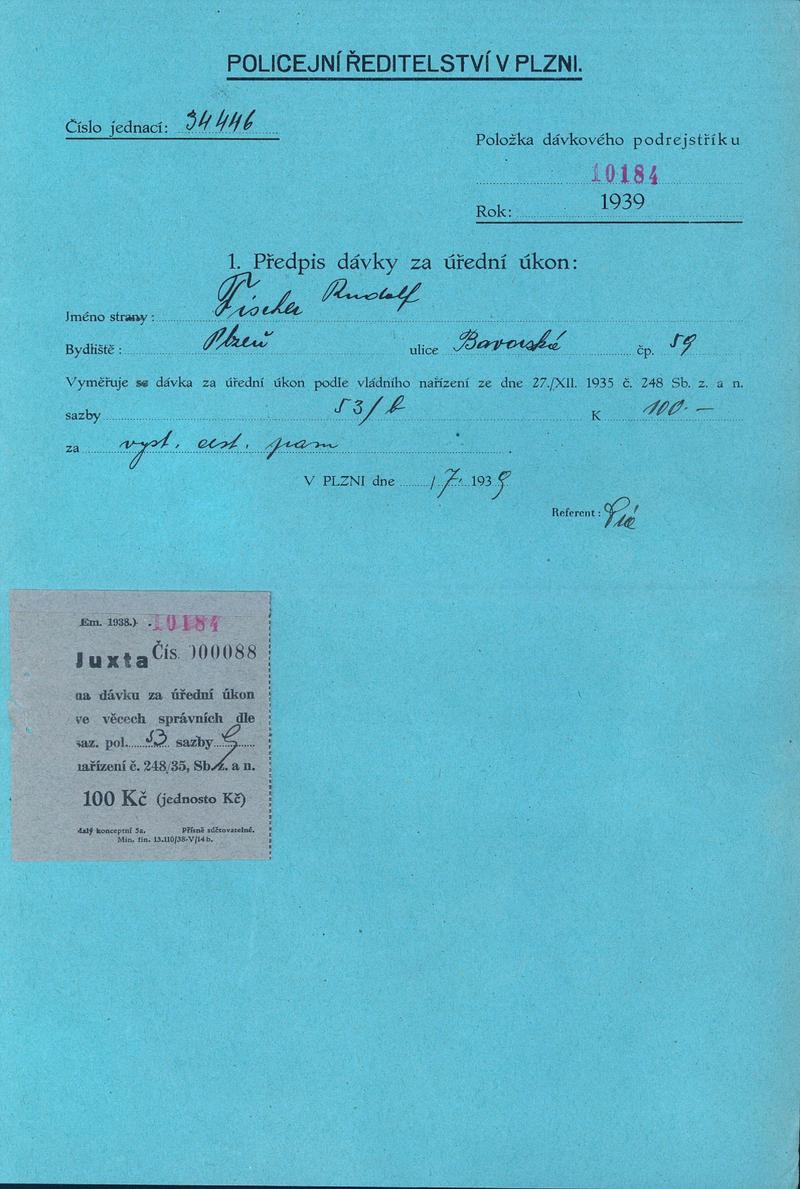 POLICEJNÍ ŘEDITELSTVÍ V PLZNI.
Číslo jednací: 34446
Položka dávkového podrejstříku
10184
Rok: 1939
1. Předpis dávky za úřední úkon:
Jméno strany: Fischer Rudolf
Bydliště: Plzeň ulice Bavorská čp. 59
Vyměřuje se dávka za úřední úkon podle vládního nařízení ze dne 27./XII. 1935 č. 248 Sb. z. a n.
sazby 53/b K 100.-
za vyst. cest. pasu
V PLZNI dne 1/7. 1939
Referent:
Em. 1938.) 10184
Juxta Čís. 000088
na dávku za úřední úkon
ve věcech správních dle
saz. pol. 53 sazby
nařízení č. 248/35, Sb. z. a n.
100 Kč (jednosto Kč)
dalý konceptní 5a. Přísně súčtovatelné.
Min. fin. 13.110/38-V/14b.